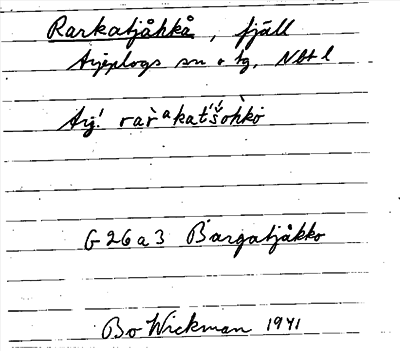 Rarkatjåhkå, fjäll
Arjeplogs sn o tg, Nbt l
Arj. rar̀ᵃkat'š́oh̀kò
G 26 a 3 Bargatjåkko
Bo Wickman 1941